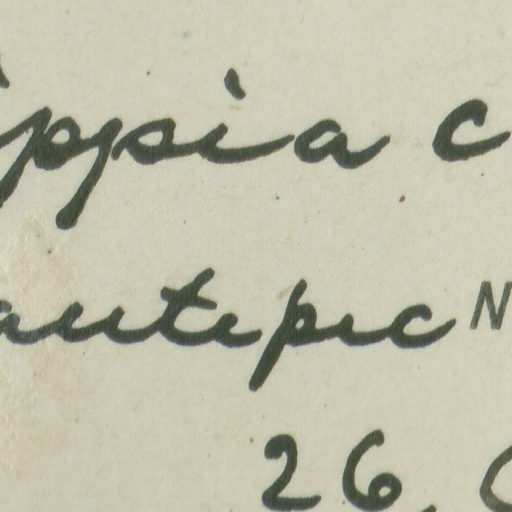 ippsia c
autepec N
26,